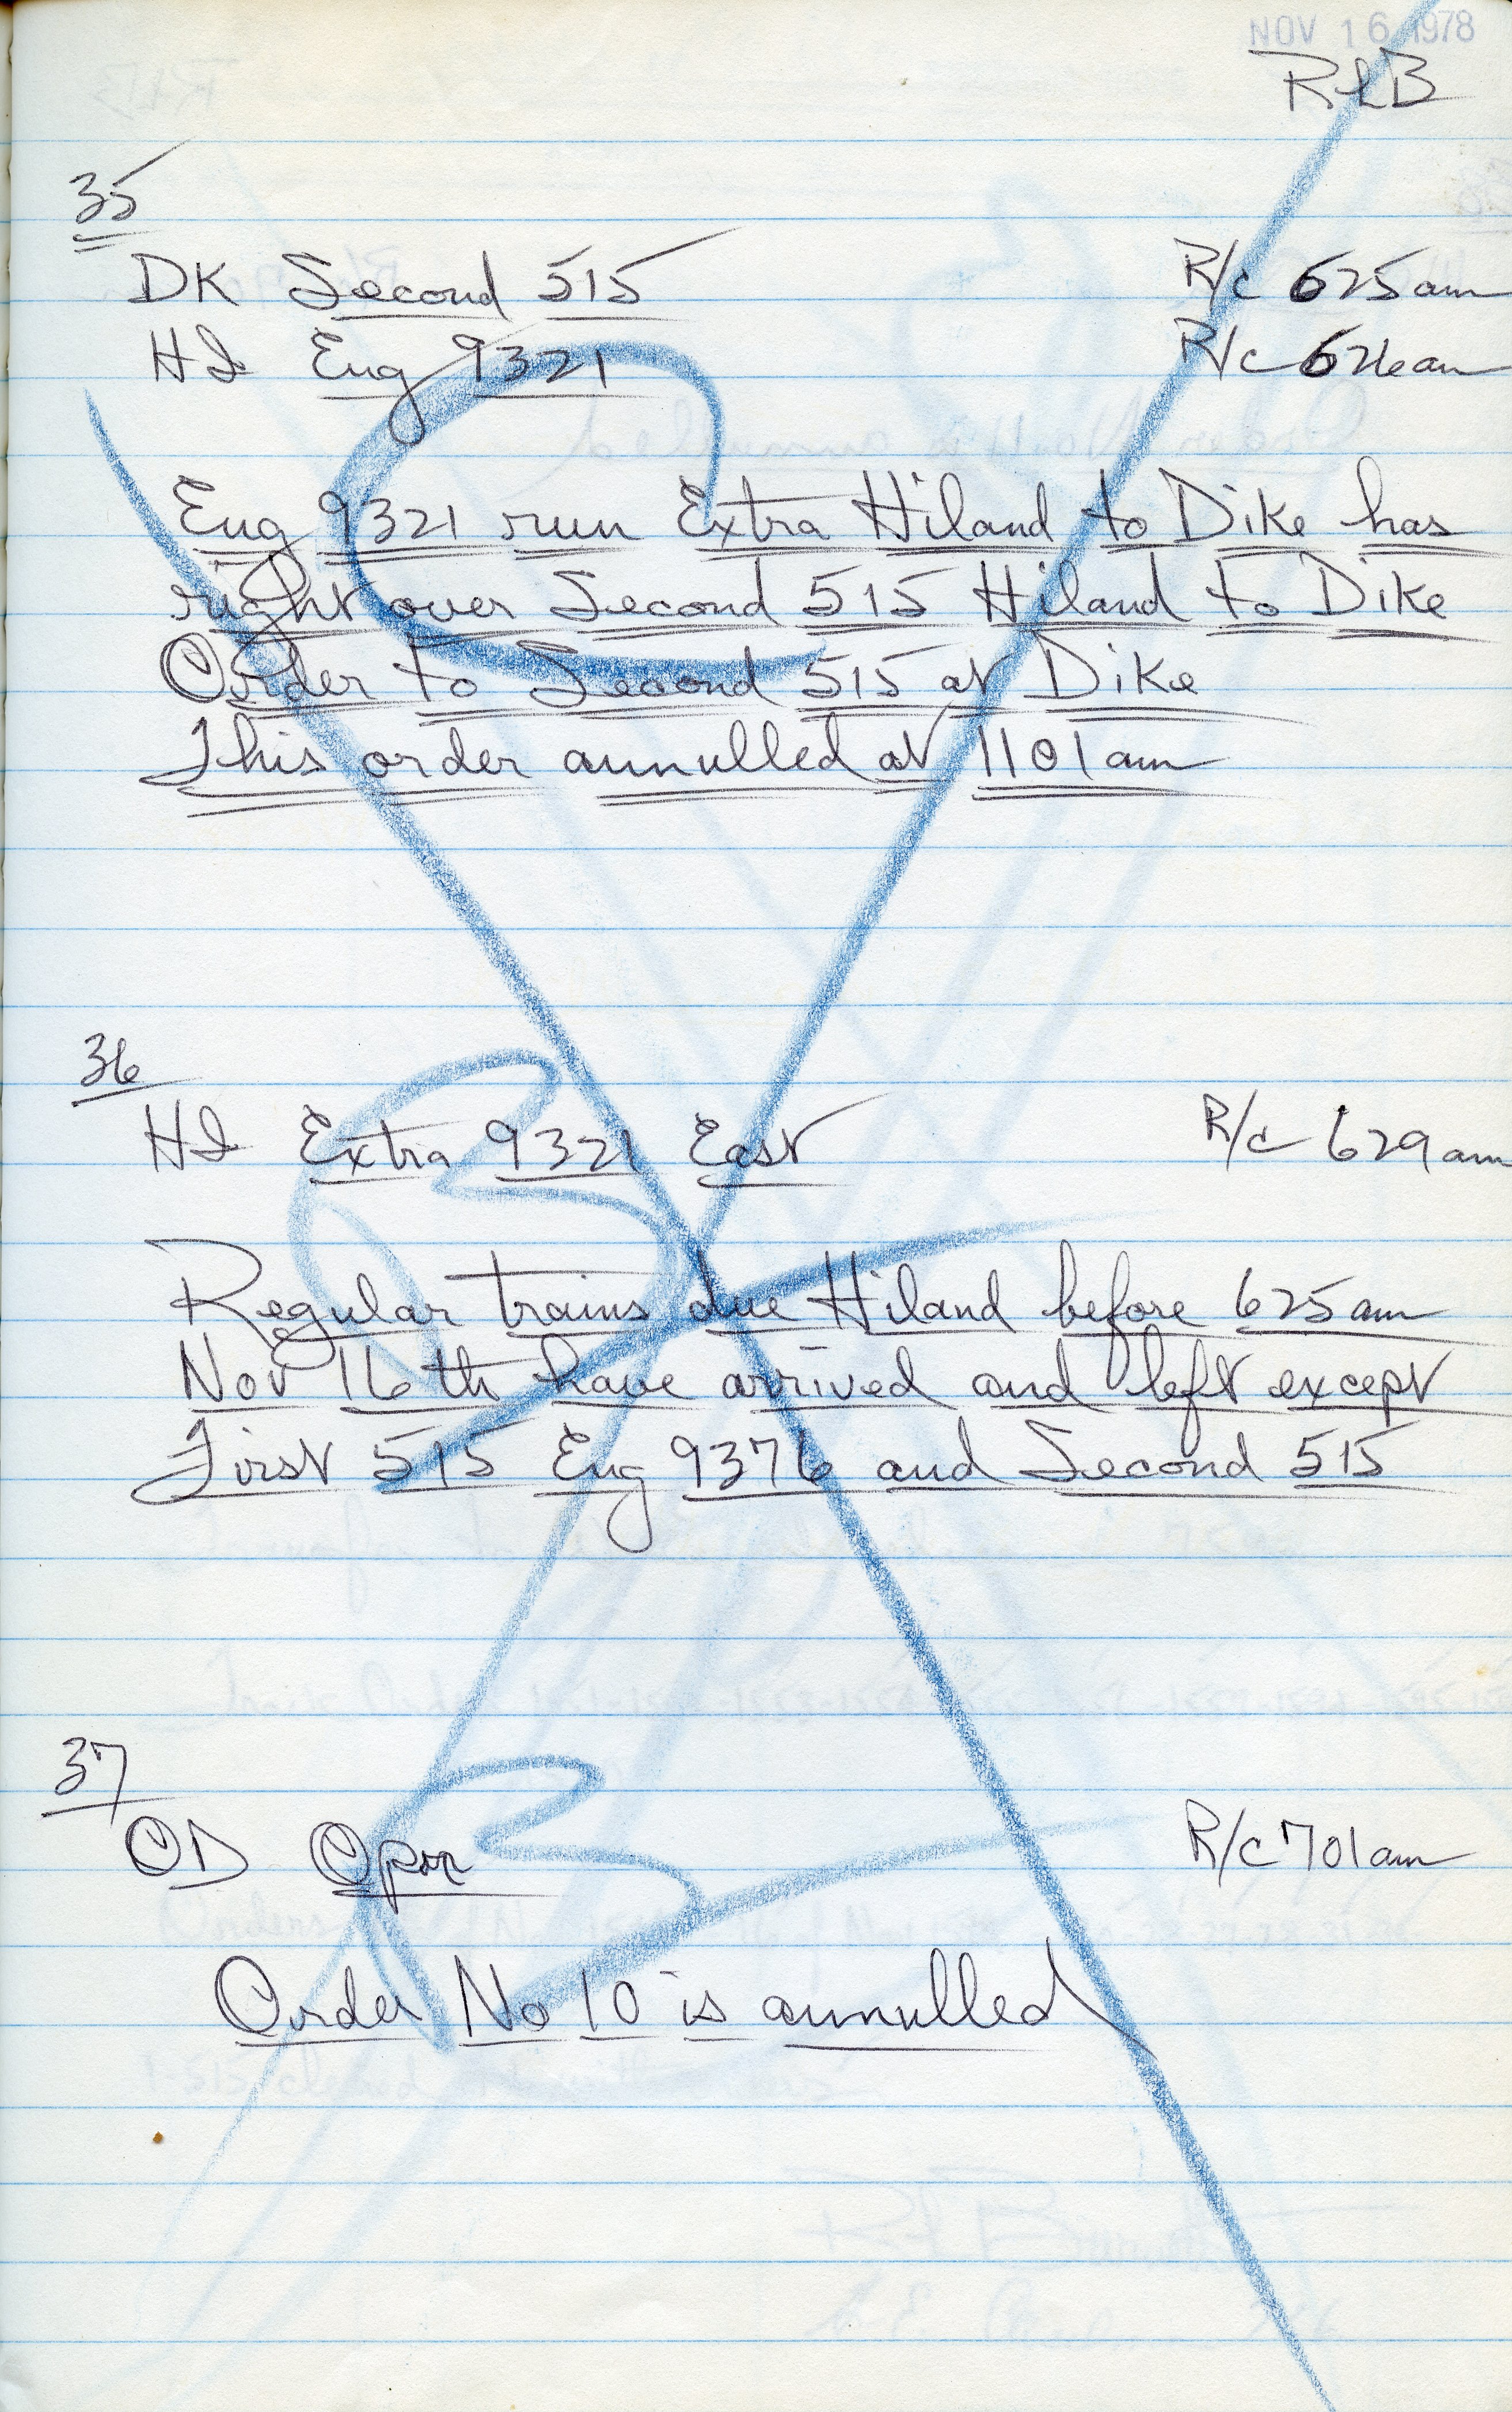 NOV 16 1978
RLB
35
DK Second 515 R/c 625am
HI Eng 9321 R/c 626am
Eng 9321 run Extra Hiland to Dike has
right over Second 515 Hiland to Dike
Order to Second 515 at Dike
This order annulled at 1101am
36
HI Extra 9321 East R/c 629am
Regular trains due Hiland before 625am
Nov 16th have arrived and left except
First 515 Eng 9376 and Second 515
37
OD Opr R/c 701am
Order No 10 is annulled